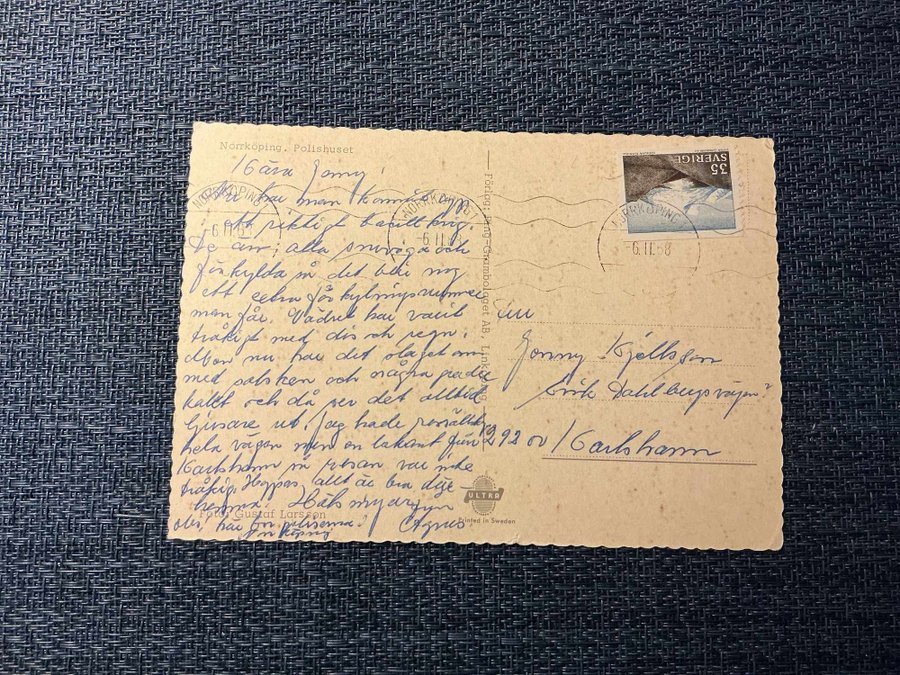 Norrköping. Polishuset
Kära Jonny!
Nu har man kommit upp
ett riktigt
De är; alla snuviga och
förkylda så det blir nog
ett extra förkylningsnummer
man får. Vädret har varit
tråkigt med dis och regn.
Men nu har det slaget om
med solsken och några grader
kallt och då ser det alltid
ljusare ut. Jag hade
hela vägen men en från
Karlshamn så resan var inte
tråkig. Hoppas allt är bra
hemma. Hälsn
Foto: Gustaf Larsson
obs, här
Agnes
Linköping
Förlag:
AB, Linköping
ULTRA
Printed in Sweden
SVERIGE 35
NORRKÖPING
-6.11.68
NORRKÖPING
-6.11.68
NORRKÖPING
-6.11.68
Jonny Kjellsson
Erik Dahlbergsvägen 2
292 00 Karlshamn